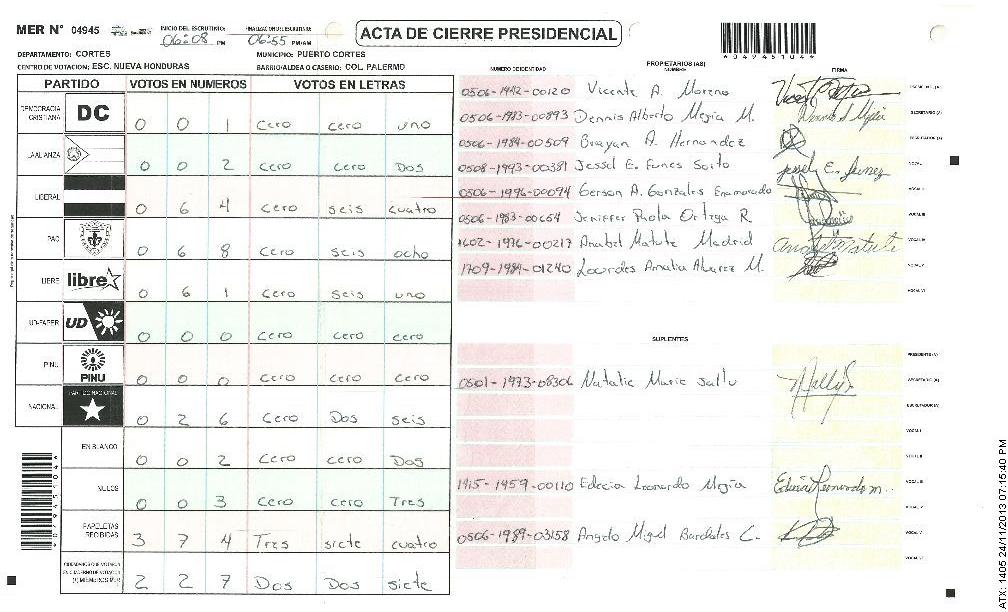 MER N° 04945
INICIO DEL ESCRUTINIO: 06:08 PM
FINALIZACION DEL ESCRUTINIO: 06:55 PM/AM
ACTA DE CIERRE PRESIDENCIAL
*04945104*
DEPARTAMENTO: CORTES
MUNICIPIO: PUERTO CORTES
CENTRO DE VOTACION: ESC. NUEVA HONDURAS
BARRIO/ALDEA O CASERIO: COL. PALERMO
PARTIDO VOTOS EN NUMEROS VOTOS EN LETRAS
DEMOCRACIA CRISTIANA DC 0 0 1 Cero cero uno
LA ALIANZA 0 0 2 Cero cero Dos
LIBERAL 0 6 4 Cero seis cuatro
PAC 0 6 8 Cero seis ocho
LIBRE libre 0 6 1 Cero seis uno
UD-FAPER UD 0 0 0 Cero cero cero
PINU PINU 0 0 0 Cero cero cero
NACIONAL PARTIDO NACIONAL 0 2 6 Cero Dos seis
EN BLANCO 0 0 2 Cero cero Dos
NULOS 0 0 3 Cero Cero Tres
PAPELETAS RECIBIDAS 3 7 4 Tres siete cuatro
CIUDADANOS QUE VOTARON EN CUADERNO DE VOTACION (+) MIEMBROS MER 2 2 7 Dos Dos siete
NUMERO DE IDENTIDAD PROPIETARIOS (AS) NOMBRE FIRMA
0506-1942-00120 Vicente A. Moreno PRESIDENTE (A)
0506-1983-00893 Dennis Alberto Mejia M. SECRETARIO (A)
0506-1989-00509 Brayan A. Hernandez ESCRUTADOR (A)
0508-1993-00381 Jessel E. Funes VOCAL I
0506-1996-00094 Gerson A. Gonzales Enamorado VOCAL II
0506-1983-00654 Jeniffer Paola Ortega R VOCAL III
1602-1976-00217 Anabel Matute Madrid VOCAL IV
1709-1984-01240 Lourdes Amalia Alvarez M. VOCAL V
VOCAL VI
SUPLENTES
PRESIDENTE (A)
0501-1973-08306 Natalie Marie SECRETARIO (A)
ESCRUTADOR (A)
VOCAL I
VOCAL II
1915-1959-00110 Edecia Leonardo Mejia VOCAL III
VOCAL IV
0506-1989-03158 Angelo Miguel C. VOCAL V
VOCAL VI
*04945104*
ATX: 1405 24/11/2013 07:15:40 PM